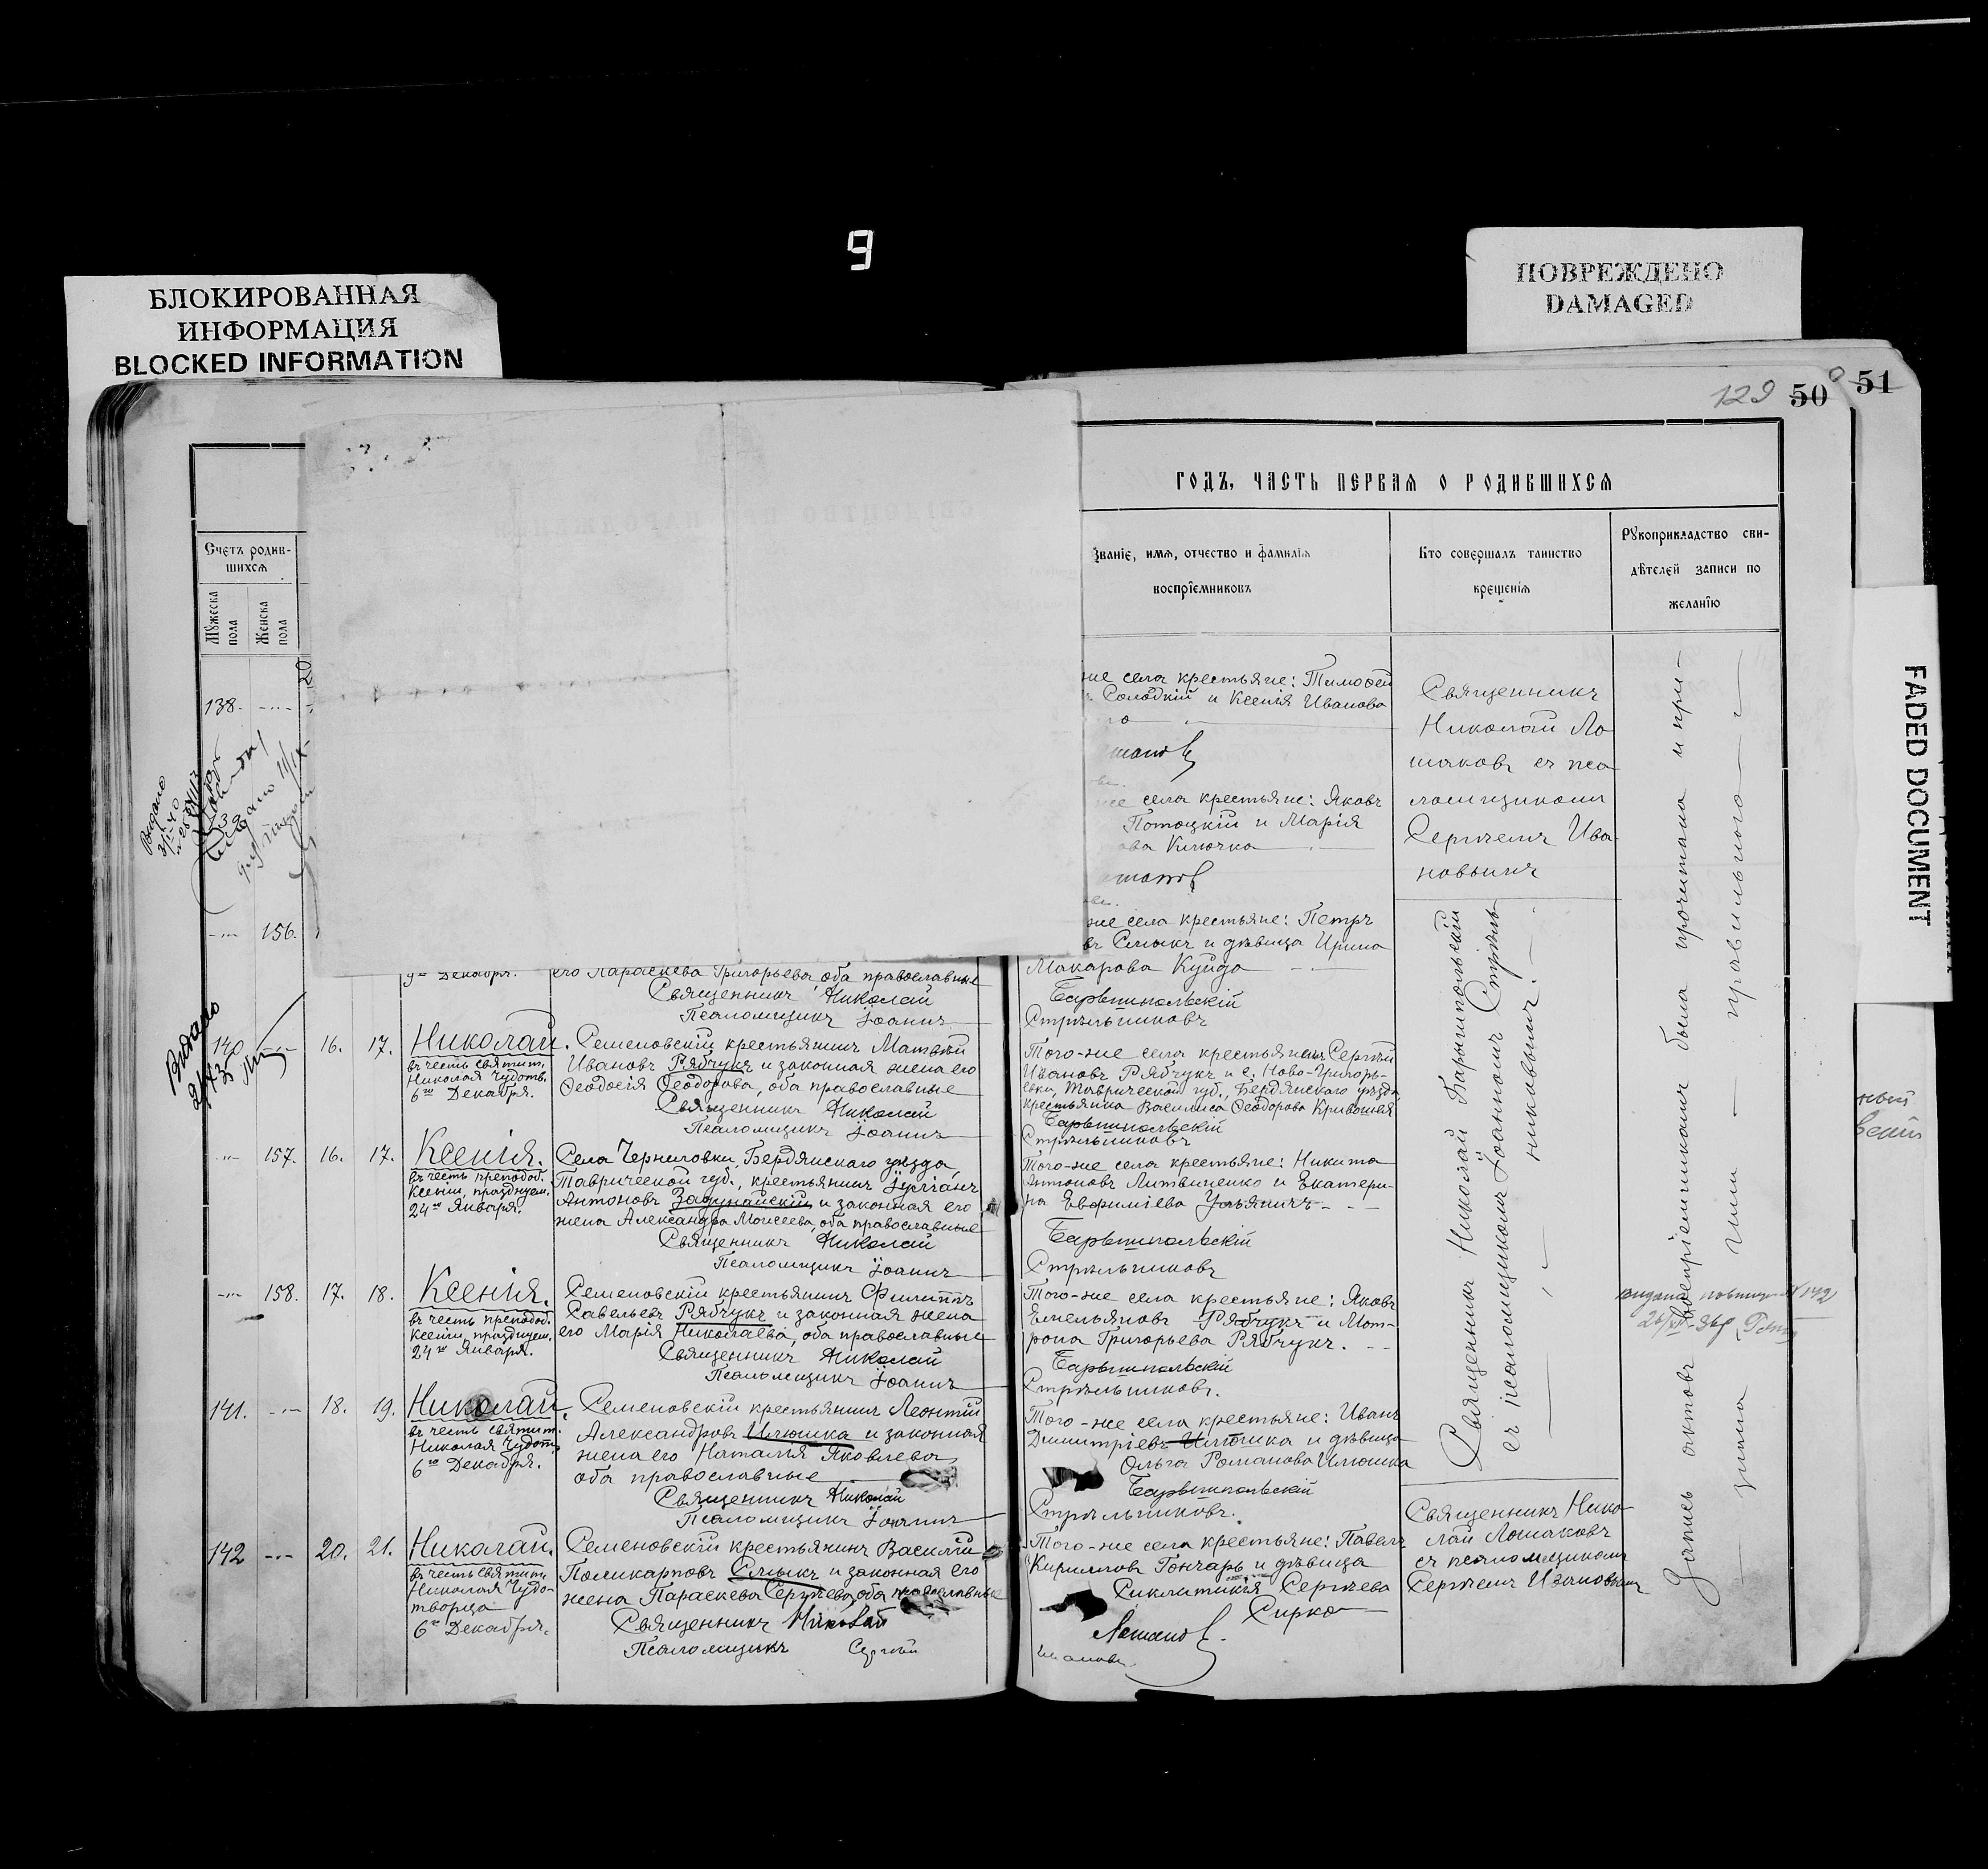 9
БЛОКИРОВАННАЯ
ИНФОРМАЦИЯ
BLOCKED INFORMATION
ПОВРЕЖДЕНО
DAMAGED
129 50 51
FADED DOCUMENT
Счетъ родив-
шихся
Мужеска
пола
Женска
пола
ГОДЪ, ЧАСТЬ ПЕРВАЯ О РОДИВШИХСЯ
Званіе, имя, отчество и фамилія
воспріемниковъ
Кто совершалъ таинство
крещенія
Рукоприкладство сви-
дѣтелей записи по
желанію
138.
же села крестьяне: Тимоѳей
Солодкій и Ксенія Иванова
Священникъ
Николай Ло
шаковъ съ пса
ломщикомъ
Сергіемъ Ива
новымъ
села крестьяне: Яковъ
Потоцкій и Марія
ова Ключка
156.
же села крестьяне: Петръ
въ Смыкъ и дѣвица Ирина
Макарова Куйда
Барышпольскій
Стрѣльниковъ
9го Декабря.
его Параскева Григорьева, оба православные
Священникъ Николай
Псаломщикъ Іоаннъ
Выдано
140 16. 17. Николай.
въ честь святит.
Николая Чудотв.
6го Декабря.
Семеновскій крестьянинъ Матвѣй
Ивановъ Рябчукъ и законная жена его
Ѳеодосія Ѳеодорова, оба православные
Священникъ Николай
Псаломщикъ Іоаннъ
Того-же села крестьянинъ Сергѣй
Ивановъ Рябчукъ и с. Ново-Григорь-
евки, Таврической губ., Бердянскаго уѣзда
крестьянка Василиса Ѳеодорова Кривошея
Барышпольскій
Стрѣльниковъ
157. 16. 17. Ксенія.
въ честь преподоб.
Ксеніи, празднуем.
24го Января.
Села Черниговки, Бердянскаго уѣзда,
Таврической губ., крестьянинъ Іуліанъ
Антоновъ Задунайскій и законная его
жена Александра Моисеева, оба православные
Священникъ Николай
Псаломщикъ Іоаннъ
Того-же села крестьяне: Никита
Антоновъ Литвиненко и Екатери-
на Евфиміева Ульяничъ
Барышпольскій
Стрѣльниковъ
158. 17. 18. Ксенія.
въ честь преподоб.
Ксеніи, празднуем.
24го Января.
Семеновскій крестьянинъ Филиппъ
Савельевъ Рябчукъ и законная жена
его Марія Николаева, оба православные
Священникъ Николай
Псаломщикъ Іоаннъ
Того-же села крестьяне: Яковъ
Емельяновъ Рябчукъ и Мат-
рона Григорьева Рябчукъ.
Барышпольскій
Стрѣльниковъ.
141. 18. 19. Николай.
въ честь святит.
Николая Чудотв.
6го Декабря.
Семеновскій крестьянинъ Леонтій
Александровъ Илюшка и законная
жена его Наталія Яковлева,
оба православные
Священникъ Николай
Псаломщикъ Іоаннъ
Того-же села крестьяне: Иванъ
Димитріевъ Илюшка и дѣвица
Ольга Романова Илюшка
Барышпольскій
Стрѣльниковъ.
142 20. 21. Николай.
въ честь святит.
Николая Чудо-
творца
6го Декабря.
Семеновскій крестьянинъ Василій
Поликарповъ Смыкъ и законная его
жена Параскева Сергѣева, оба православные
Священникъ Николай
Псаломщикъ Сергій
Того-же села крестьяне: Павелъ
Кирилловъ Гончаръ и дѣвица
Сиклитикія Сергѣева
Сирко
Лошаковъ.
Ивановъ.
Священникъ Николай Барышпольскій
съ псаломщикомъ Іоанномъ Стрѣль-
никовымъ.
Священникъ Нико-
лай Лошаковъ
съ псаломщикомъ
Сергіемъ Ивановымъ
Запись актовъ воспріемниками была прочитана и при-
знана ими правильною